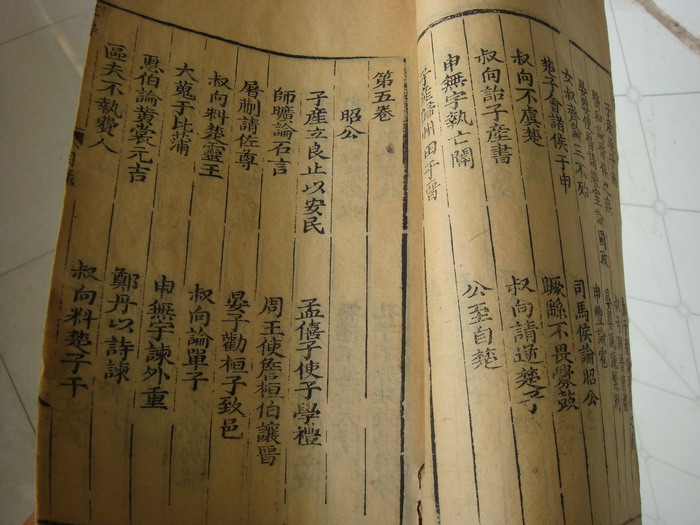 女叔齊論三不殆 申豐論雹
楚子會諸侯于申 司馬侯論昭公
叔向不虞楚 蹶繇不畏釁鼓
叔向詒子產書 叔向請逆楚子
申無宇執亡閽 公至自楚
田于晉
第五卷
昭公
子產立良止以安民 孟僖子使子學禮
師曠論石言 周王使詹桓伯讓晉
屠蒯請佐尊 晏子勸桓子致邑
叔向料楚靈王 叔向論單子
大蒐于比蒲 申無宇諫外重
惠伯論黃裳元吉 鄭丹以詩諫
區夫不執費人 叔向料楚子干